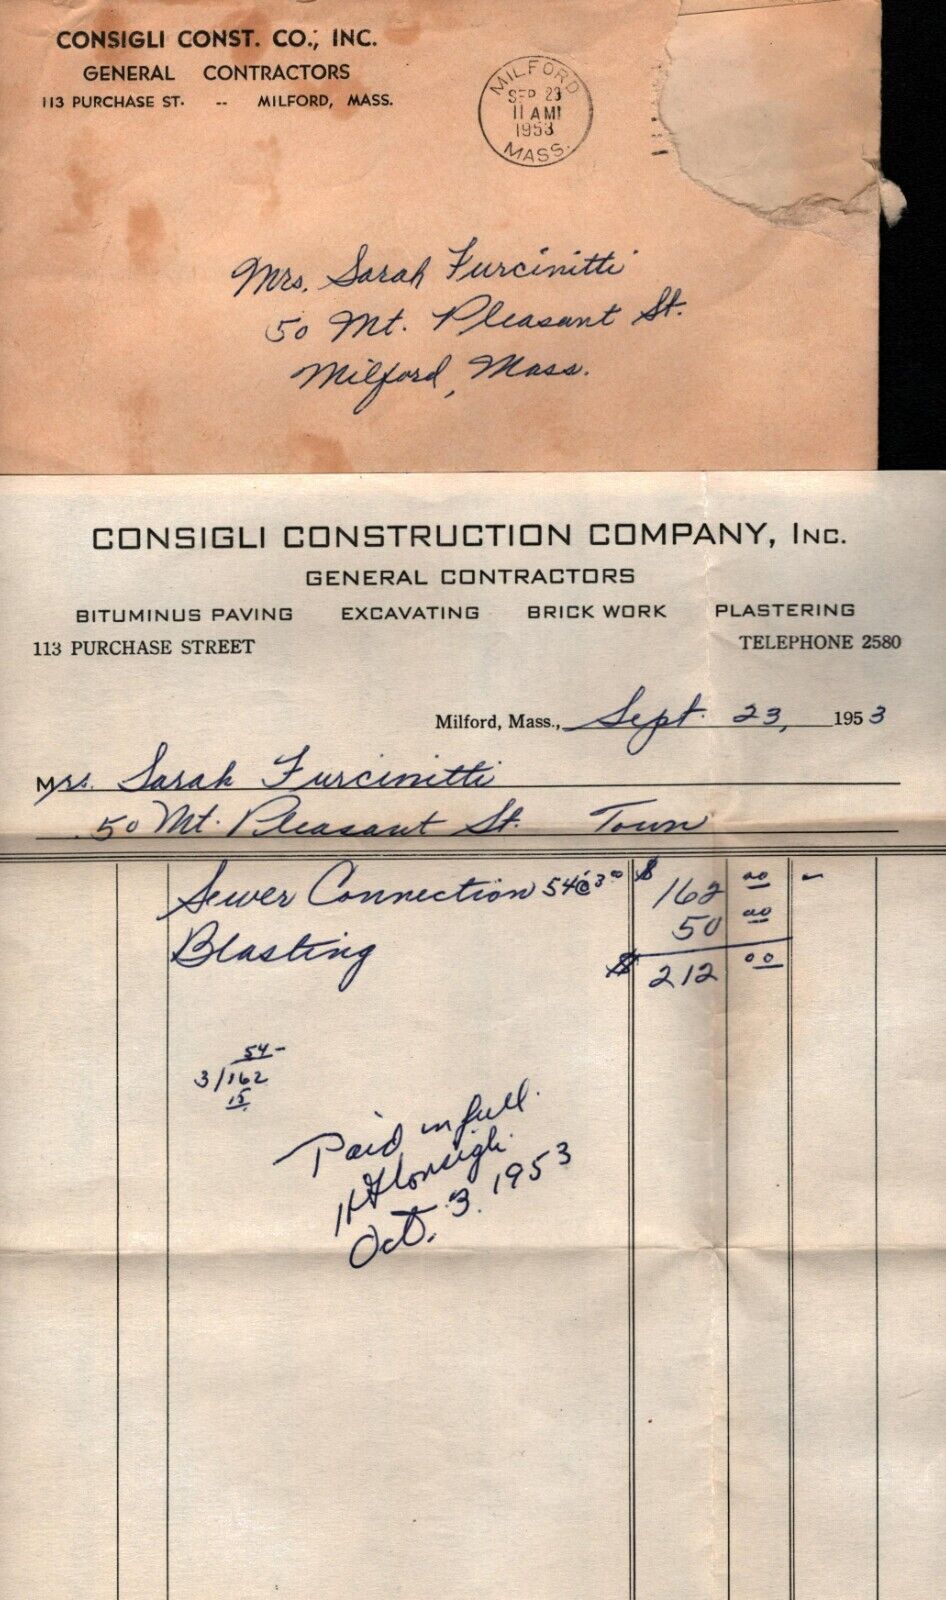 CONSIGLI CONST. CO., INC.
GENERAL CONTRACTORS
113 PURCHASE ST. -- MILFORD, MASS.
MILFORD
SEP 23
11 AM
1953
MASS.
Mrs. Sarah Furcinitti
50 Mt. Pleasant St.
Milford, Mass.
CONSIGLI CONSTRUCTION COMPANY, INC.
GENERAL CONTRACTORS
BITUMINUS PAVING EXCAVATING BRICK WORK PLASTERING
113 PURCHASE STREET TELEPHONE 2580
Milford, Mass., Sept. 23, 1953
Mrs. Sarah Furcinitti
50 Mt. Pleasant St. Town
Sewer Connection 54' @ 3 00 $ 162 00 -
Blasting 50 00
$ 212 00
54-
3/162
15
Paid in full.
Consigli
Oct. 3. 1953